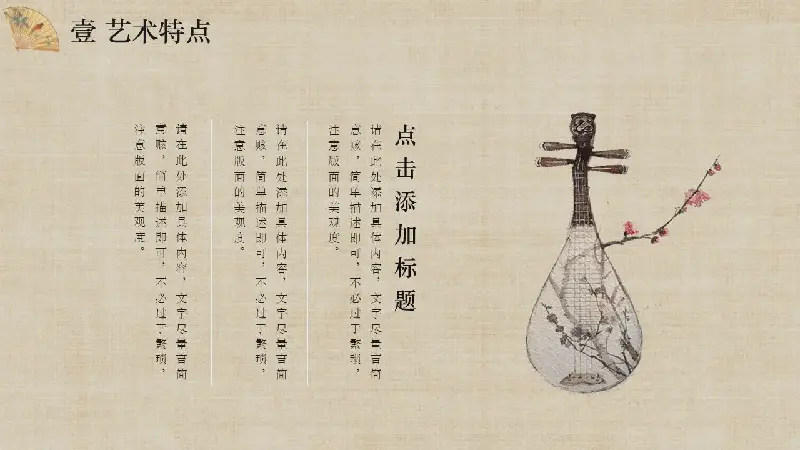 壹 艺术特点
点击添加标题
请在此处添加具体内容，文字尽量言简
意赅，简单描述即可，不必过于繁琐，
注意版面的美观度。
请在此处添加具体内容，文字尽量言简
意赅，简单描述即可，不必过于繁琐，
注意版面的美观度。
请在此处添加具体内容，文字尽量言简
意赅，简单描述即可，不必过于繁琐，
注意版面的美观度。